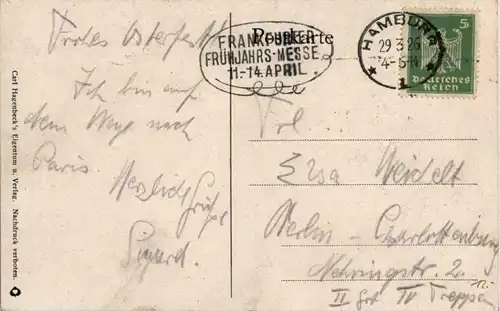 Frohes Osterfest!
Ich bin auf
dem Wege nach
Paris.
Herzliche Grüße
Sigurd.
Carl Hagenbeck's Eigentum u. Verlag. Nachdruck verboten.
Postkarte
FRANKFURTER
FRÜHJAHRS-MESSE
11-14. APRIL
HAMBURG
29.3.26
4-5 N
1
5
Deutsches
Reich
Frl.
Elsa Weidelt
Berlin - Charlottenburg
Nehringstr. 2.
II Grt IV Treppen